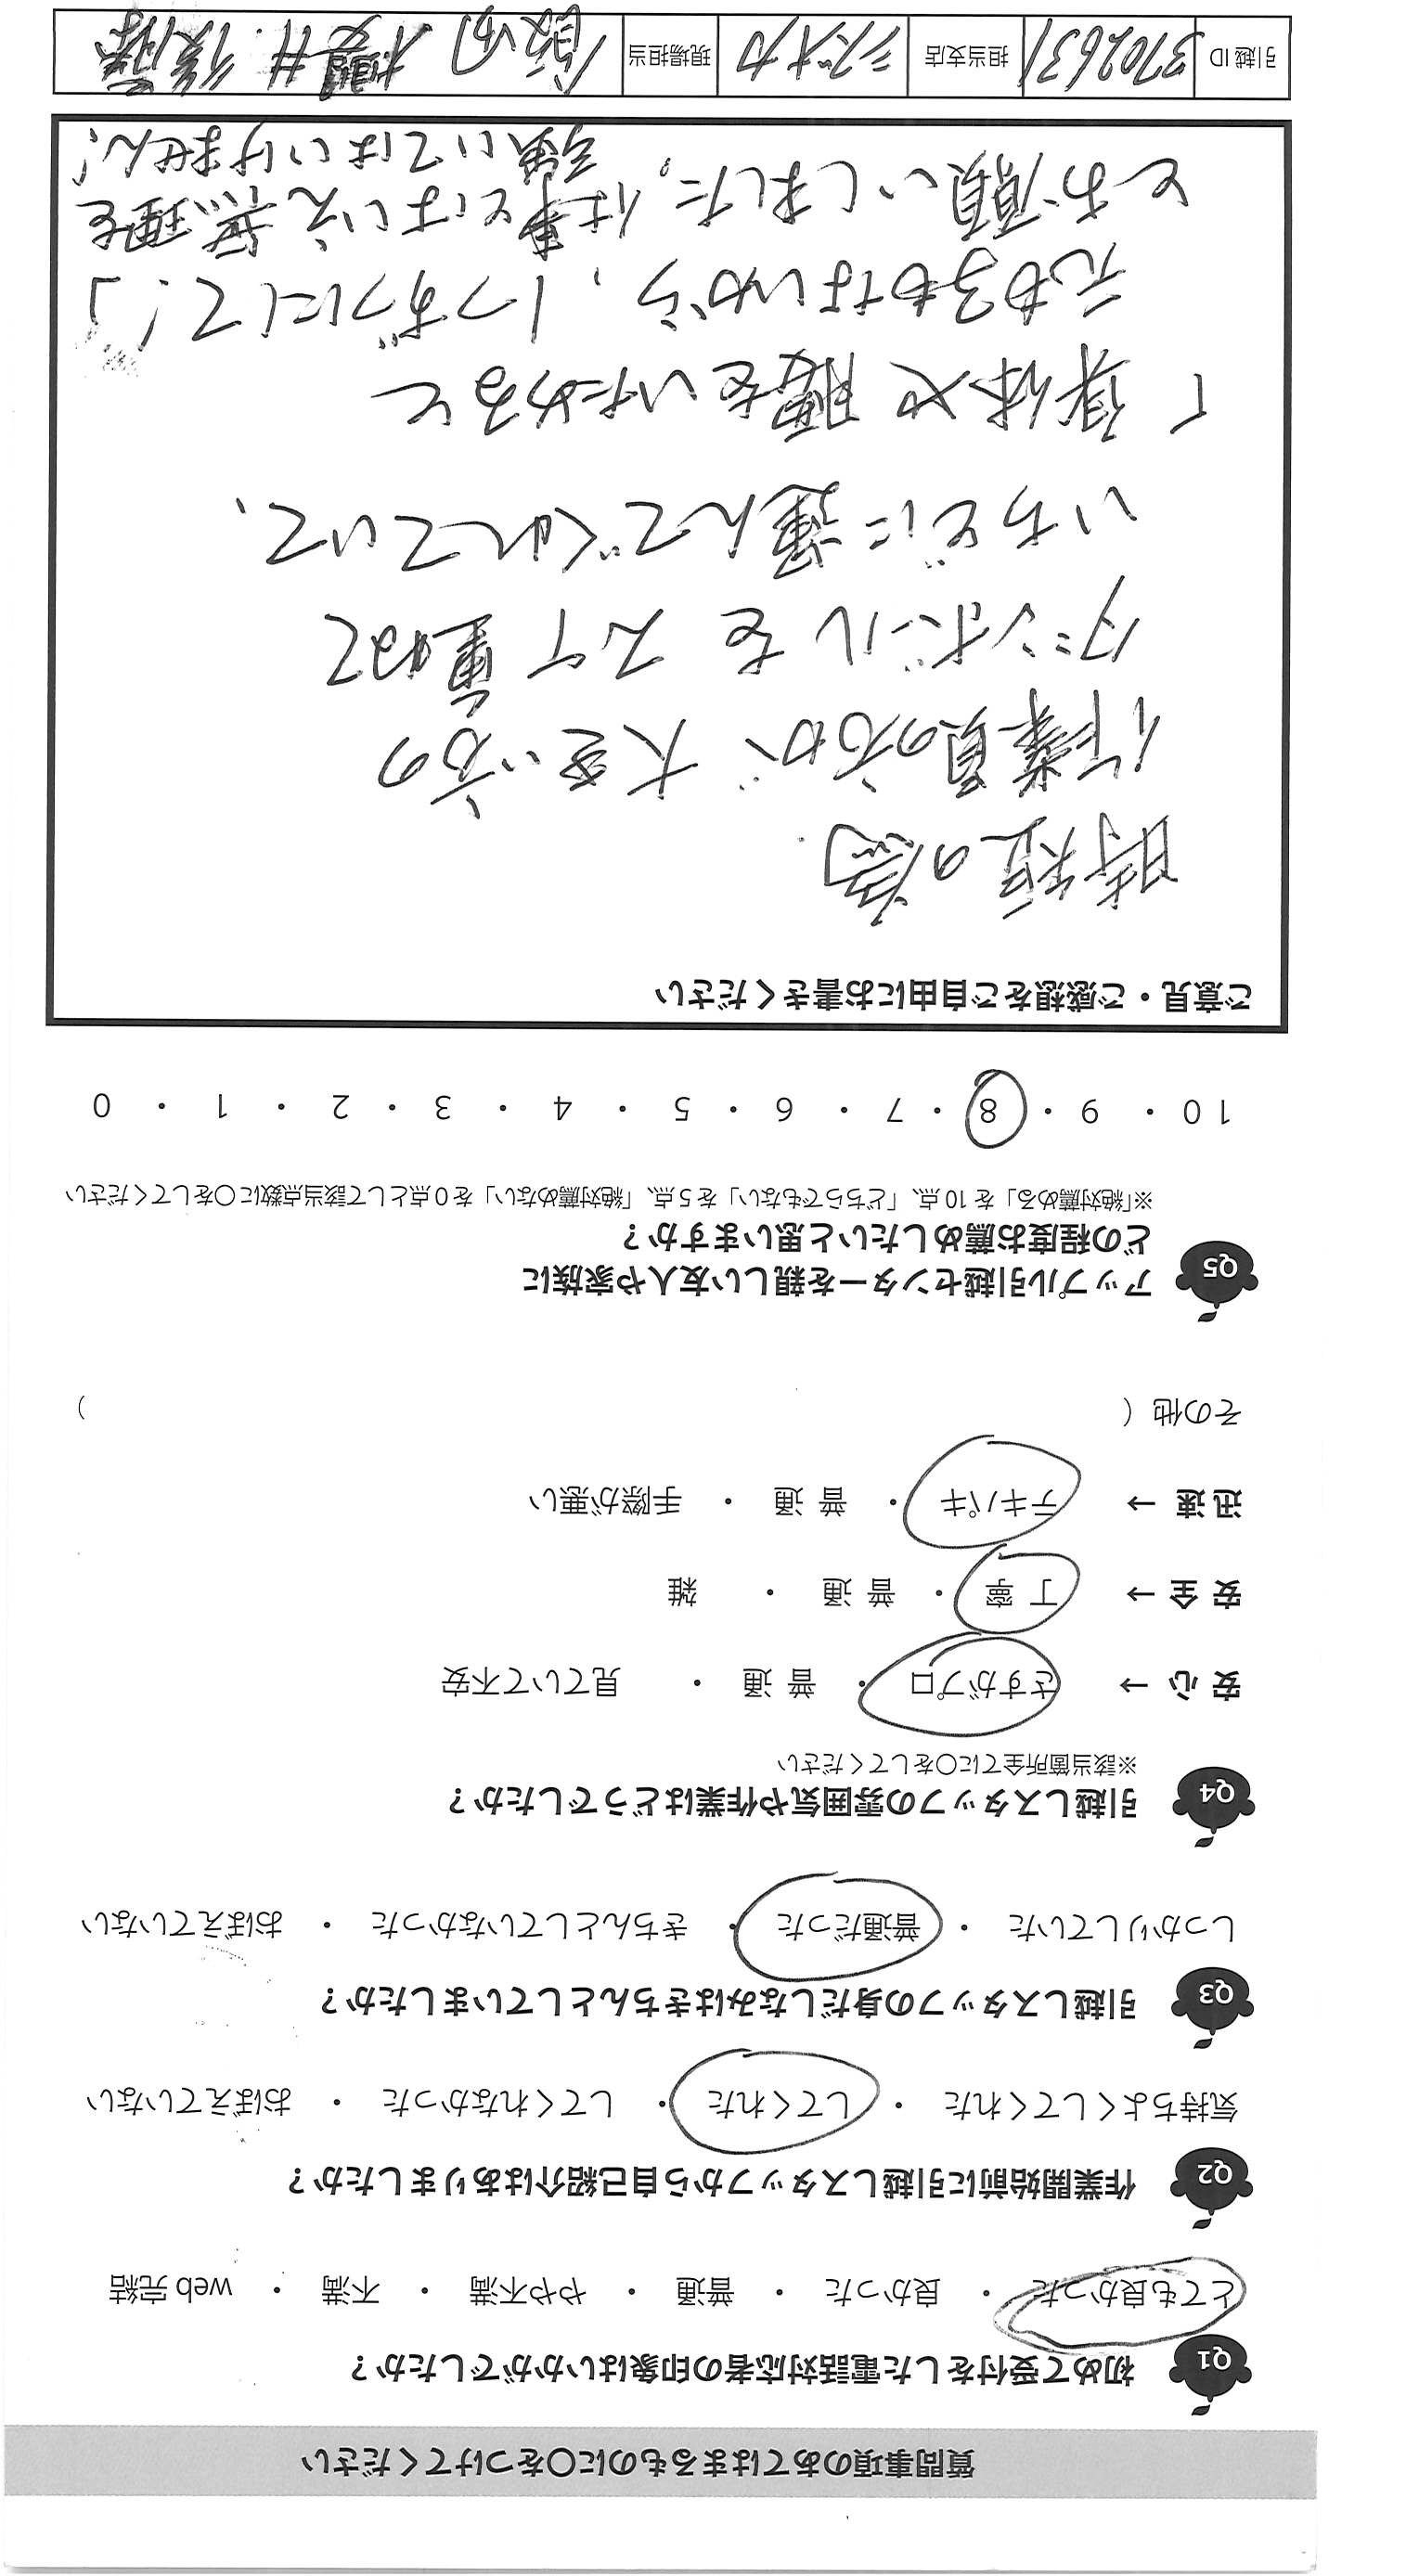 質問事項のあてはまるものに○をつけてください
Q1 初めて受付をした電話対応者の印象はいかがでしたか？
とても良かった ・ 良かった ・ 普通 ・ やや不満 ・ 不満 ・ web 完結
Q2 作業開始前に引越しスタッフから自己紹介はありましたか？
気持ちよくしてくれた ・ してくれた ・ してくれなかった ・ おぼえていない
Q3 引越しスタッフの身だしなみはきちんとしていましたか？
しっかりしていた ・ 普通だった ・ きちんとしていなかった ・ おぼえていない
Q4 引越しスタッフの雰囲気や作業はどうでしたか？
※該当箇所全てに○をしてください
安 心 → さすがプロ ・ 普 通 ・ 見ていて不安
安 全 → 丁 寧 ・ 普 通 ・ 雑
迅 速 → テキパキ ・ 普 通 ・ 手際が悪い
その他（ ）
Q5 アップル引越センターを親しい友人や家族に
どの程度お薦めしたいと思いますか？
※「絶対薦める」を 10 点、「どちらでもない」を 5 点、「絶対薦めない」を 0 点として該当点数に○をしてください
10 ・ 9 ・ 8 ・ 7 ・ 6 ・ 5 ・ 4 ・ 3 ・ 2 ・ 1 ・ 0
ご意見・ご感想をご自由にお書きください
時短の為
作業員の方が 大きい方の
ダンボールを 2ケ 重ねて
いちどに運んでくれていて、
「身体や腰をいためると
元も子もないから、1つずつにして！」
とお願いしました, 仕事とはいえ 無理を
強いてはいけません!
引越 ID 3702631 担当支店 シズオカ 現場担当 飯田 桜井. 後藤